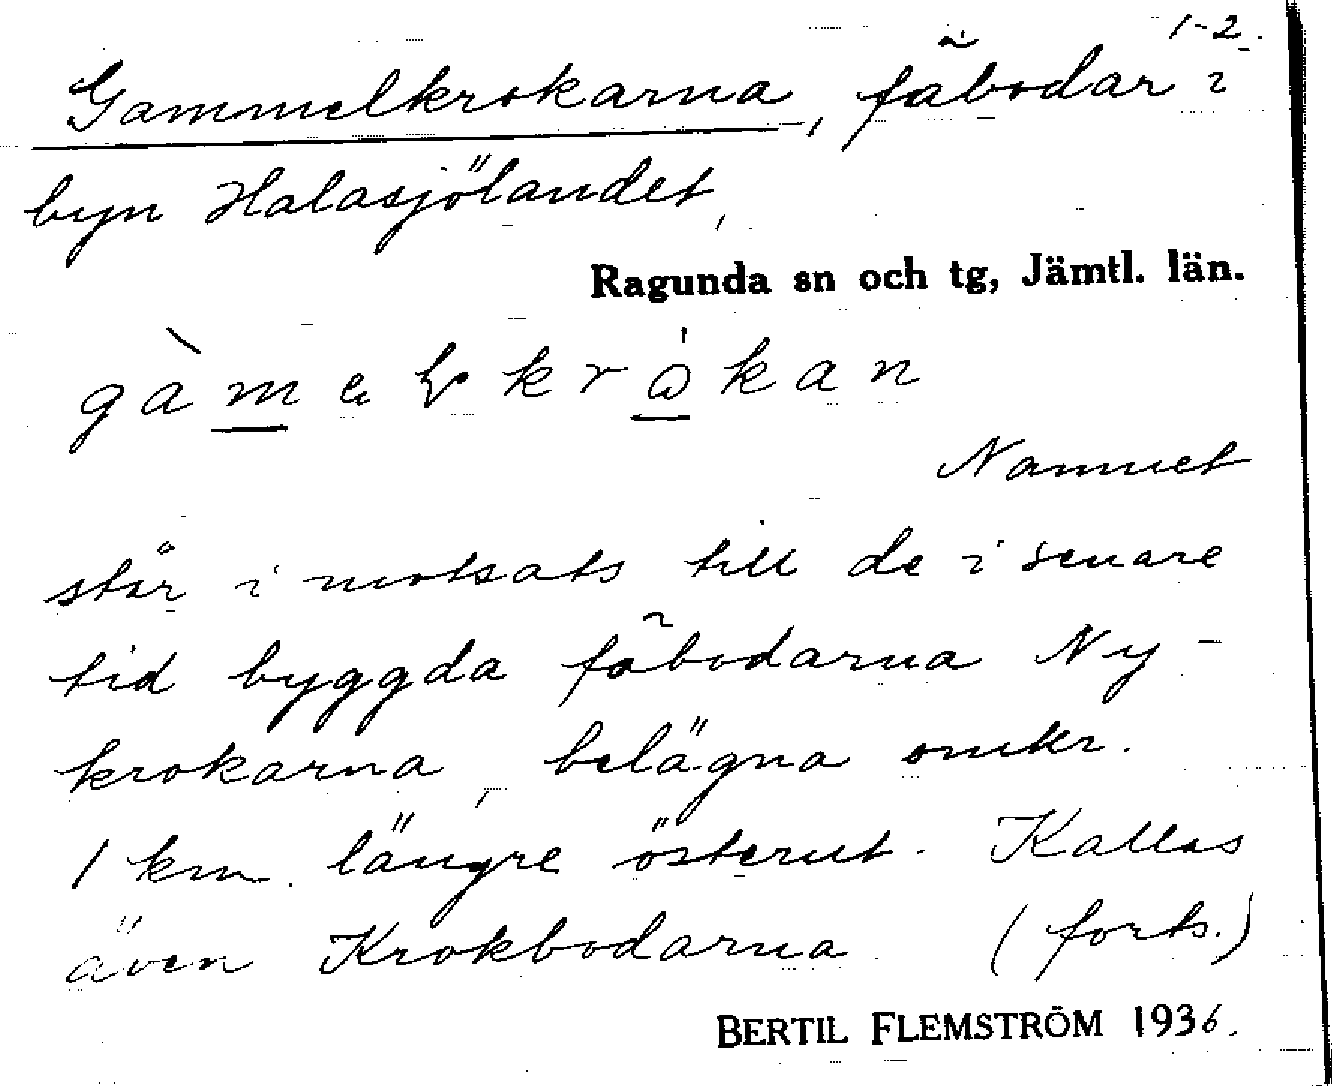 1-2.
Gammelkrokarna, fäbodar i
byn Halasjölandet,
Ragunda sn och tg, Jämtl. län.
Namnet
står i motsats till de i senare
tid byggda fäbodarna Ny-
krokarna, belägna omkr.
1 km. längre österut. Kallas
även Krokbodarna (forts.)
BERTIL FLEMSTRÖM 1936.